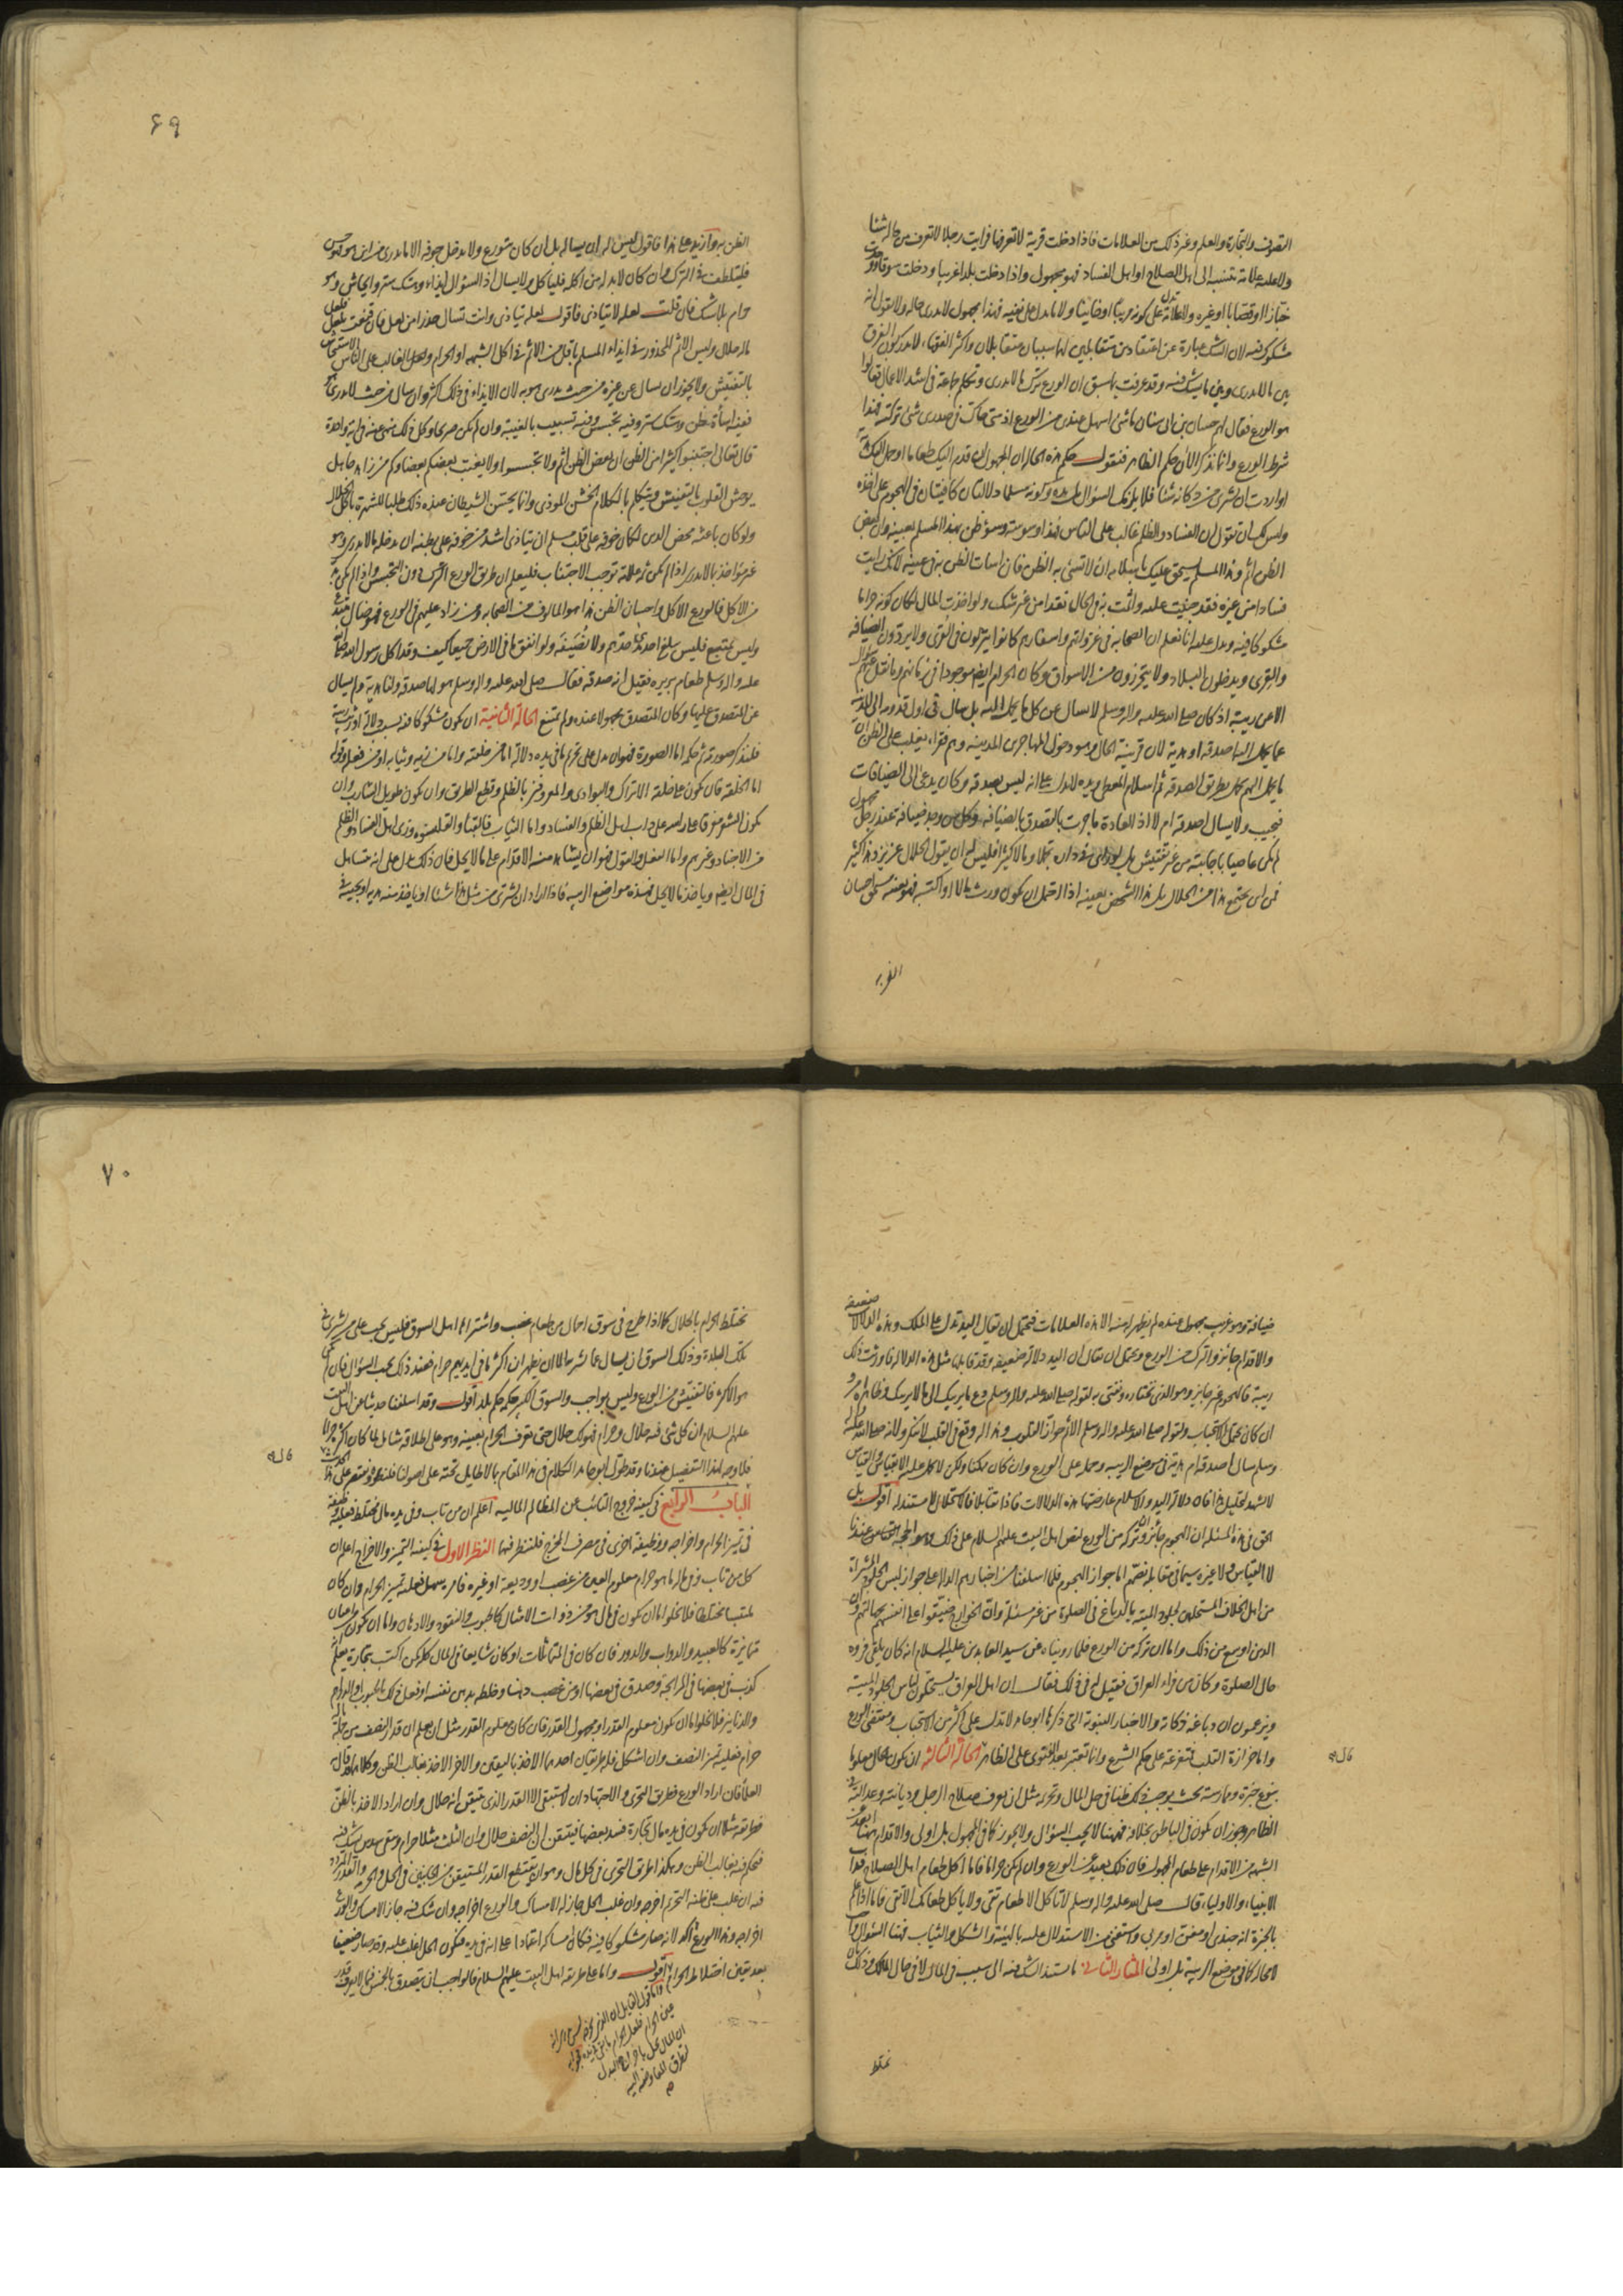 التصوف والتجارة والعلم وغير ذلك من العلامات فاذا دخلت قرية لا تعرفها فرايت رجلا لا تعرف من حاله شيئا
ولا عليه علامة تنسبه الى اهل الصلاح او اهل الفساد فهو مجهول واذا دخلت بلدا غريبا ودخلت سوقا ووجدت
خبازا او قصابا او غيره ولا علامة تدل على كونه مريبا او خائنا ولا ما يدل على نفيه فهذا مجهول لا يدرى حاله ولا نقول انه
مشكوك فيه لان الشك عبارة عن اعتقادين متقابلين لهما سببان متقابلان واكثر الفقهاء لا يدركون الفرق
بين ما لا يدرى وبين ما يشك فيه وقد عرفت بما سبق ان الورع ترك ما لا يدرى وتكلم جماعة في اشد الاعمال فقالوا
هو الورع فقال لهم حسان بن ابي سنان ما شئ اسهل عندي من الورع اذ شئ حاك في صدري شئ تركته فهذا
شرط الورع وانما نذكر الان حكم الظاهر فنقول حكم هذه الحالة ان المجهول ان قدم اليك طعاما او حمل اليك هدية
او اردت ان تشتري من دكانه شيئا فلا يلزمك السؤال بل يده وكونه مسلما دلالتان كافيتان في الهجوم على اخذه
وليس لك ان تقول ان الفساد والظلم غالب على الناس فهذا وسوسة وسوء ظن بهذا المسلم بعينه وان بعض
الظن اثم وهذا المسلم يستحق عليك باسلامه ان لا تسئ به الظن فان اسات الظن به في عينه لانك رايت
فسادا من غيره فقد جنيت عليه واثمت به في الحال نقدا من غير شك ولو اخذت المال لكان كونه حراما
مشكوكا فيه ويدل عليه انا نعلم ان الصحابة في غزواتهم واسفارهم كانوا ينزلون في القرى ولا يردون الضيافة
والقرى ويدخلون البلاد ولا يحترزون من الاسواق وكان الحرام ايضا موجودا في زمانهم وما نقل عنهم سؤال
الا عن ريبة اذ كان صلى الله عليه واله وسلم لا يسال عن كل ما يحمل اليه بل سال في اول قدومه الى المدينة
عما يحمل اليه اصدقة او هدية لان قرينة الحال وهو دخول المهاجرين المدينة وهم فقراء يغلب على الظن ان
ما يحمل اليهم يحمل بطريق الصدقة ثم اسلام المعطي ويده لا يدلان على انه ليس بصدقة وكان يدعى الى الضيافات
فيجيب ولا يسال اصدقة ام لا اذ العادة ما جرت بالتصدق بالضيافة وكل من وجد ضيافة عند رجل مجهول
لم يكن عاصيا باجابته من غير تفتيش بل لو راى في داره تجملا ومالا كثيرا فليس له ان يقول الحلال عزيز وهذا كثير
فمن اين يجتمع هذا من الحلال بل هذا الشخص بعينه اذا احتمل ان يكون ورث مالا او اكتسبه فهو بعينه يستحق احسان
الظن به
٦٩
الظن به وازيد على هذا فاقول ليس له ان يساله بل ان كان يتورع ولا يدخل جوفه الا ما يدري من اين هو فهو حسن
فليتلطف في الترك وان كان لا بد له من اكله فلياكل ولا يسال اذ السؤال ايذاء وهتك ستر وايحاش وهو
حرام بلا شك فان قلت لعله لا يتاذى فاقول لعله يتاذى وانت تسال حذرا من لعل فان قنعت بلعل فلعل
ماله حلال وليس الاثم المحذور في ايذاء المسلم باقل من الاثم في اكل الشبهة او الحرام والغالب على الناس الاستيحاش
بالتفتيش ولا يجوز ان يسال عن غيره من حيث يدري هو به لان الايذاء في ذلك اكثر وان سال من حيث لا يدري هو
ففيه اساءة ظن وهتك ستر وفيه تجسس وفيه تسبيب بالغيبة وان لم يكن صريحا وكل ذلك منهي عنه في اية واحدة
قال تعالى اجتنبوا كثيرا من الظن ان بعض الظن اثم ولا تجسسوا ولا يغتب بعضكم بعضا وكم من زاهد جاهل
يوحش القلوب بالتفتيش ويتكلم بالكلام الخشن الموذي وانما يحسن الشيطان عنده ذلك طلبا للشهرة باكل الحلال
ولو كان باعثه محض الدين لكان خوفه على قلب مسلم ان يتاذى اشد من خوفه على بطنه ان يدخله ما لا يدري وهو
غير مؤاخذ بما لا يدري اذ لم يكن ثم علامة توجب الاجتناب فليعلم ان طريق الورع الترك دون التجسس واذا لم يكن بد
من الاكل فالورع الاكل واحسان الظن هذا هو المالوف من الصحابة ومن زاد عليهم في الورع فهو ضال مبتدع
وليس بمتبع فليس يبلغ احد مد احدهم ولا نصيفه ولو انفق ما في الارض جميعا كيف وقد اكل رسول الله صلى الله
عليه واله وسلم طعام بريرة فقيل انه صدقة فقال صلى الله عليه واله وسلم هو لها صدقة ولنا هدية ولم يسال
عن المتصدق عليها وكان المتصدق مجهولا عنده ولم يمتنع الحالة الثانية ان يكون مشكوكا فيه بسبب دلالة اورثت ريبة
فلنذكر صورته ثم حكمه اما الصورة فهو ان يدل على تحريم ما في يده دلالة اما من خلقته واما من زيه وثيابه او من فعله وقوله
اما الخلقة فان يكون على خلقة الاتراك والبوادي والمعروفين بالظلم وقطع الطريق وان يكون طويل الشارب وان
يكون الشعر مفرقا على راسه على داب اهل الظلم والفساد واما الثياب فالقبا والقلنسوة وزي اهل الفساد والظلم
من الاجناد وغيرهم واما الفعل والقول فهو ان يشاهد منه الاقدام على ما لا يحل فان ذلك يدل على انه متساهل
في المال ايضا وياخذ ما لا يحل فهذه مواضع الريبة فاذا اراد ان يشتري من مثل هذا شيئا او ياخذ منه هدية او يجيبه في
ضيافة وهو غريب مجهول عنده لم يظهر له منه الا هذه العلامات فيحتمل ان يقال اليد تدل على الملك وهذه الدلالات ضعيفة
والاقدام جائز والترك من الورع ويحتمل ان يقال ان اليد دلالة ضعيفة وقد قابلها مثل هذه الدلالة فاورثت ذلك
ريبة فالهجوم غير جائز وهو الذي نختاره ونفتي به لقوله صلى الله عليه واله وسلم دع ما يريبك الى ما لا يريبك وظاهره امر و
ان كان يحتمل الاستحباب ولقوله صلى الله عليه واله وسلم الاثم حواز القلوب وهذا له وقع في القلب لا ينكر ولانه صلى الله عليه واله
وسلم سال اصدقة ام هدية في موضع الريبة وحمله على الورع وان كان ممكنا ولكن لا يحمل عليه الا بقياس والقياس
لا يشهد لتحليل هذا فان دلالة اليد والاسلام عارضتها هذه الدلالات فاذا تقابلا فالاستحلال لا مستند له اقول بل
الحق في هذه المسئلة ان الهجوم جائز وتركه من الورع لنص اهل البيت عليهم السلام على ذلك وهو الحجة عندنا
لا القياس ولا غيره سيما في مقابلة نصهم اما جواز الهجوم فلما اسلفنا من اخبارهم الدالة على جواز لبس الجلود المشتراة
من اهل الخلاف المستحلين لجلود الميتة بالدباغ في الصلوة من غير مسئلة وان الخوارج ضيقوا على انفسهم بجهالتهم وان
الدين اوسع من ذلك واما ان تركه من الورع فلما رويناه عن سيد العابدين عليه السلام انه كان يلقي فروه
حال الصلوة وكان من فراء العراق فقيل له في ذلك فقال ان اهل العراق يستحلون لباس الجلود الميتة
ويزعمون ان دباغه ذكاته والاخبار النبوية التي ذكرها ابو حامد لا تدل على اكثر من الاستحباب ومقتضى الورع
واما حزازة القلب فمتفرعة على حكم الشرع وانما تعتبر بعد الفتوى على الظاهر الحالة الثالثة ان يكون الحال معلوما
قاله
بنوع خبرة وممارسة بحيث يوجب ذلك ظنا في حل المال وتحريمه مثل ان يعرف صلاح الرجل وديانته وعدالته في
الظاهر وجوز ان يكون في الباطن بخلافه فههنا لا يجب السؤال ولا يجوز كما في المجهول بل اولى والاقدام ههنا ابعد عن
الشبهة من الاقدام على طعام المجهول فان ذلك بعيد عن الورع وان لم يكن حراما فاما اكل طعام اهل الصلاح فداب
الانبياء والاولياء قال صلى الله عليه واله وسلم لا تاكل الا طعام تقي ولا ياكل طعامك الا تقي فاما اذا علم
بالخبرة انه جندي او مغن او مربي واستغنى عن الاستدلال عليه بالهيئة والشكل والثياب فههنا السؤال واجب
لا محالة كما في موضع الريبة بل اولى المثار الثاني ما يستند الشك فيه الى سبب في المال لا في حال المالك وذلك بان
يختلط
٧٠
يختلط الحرام بالحلال كما اذا طرح في سوق احمال من طعام غصب واشتراها اهل السوق فليس يجب على من يشتري في
تلك البلدة وذلك السوق ان يسال عما يشتريه الا ان يظهر ان اكثر ما في ايديهم حرام فعند ذلك يجب السؤال فان لم يكن
هو الاكثر فالتفتيش من الورع وليس بواجب والسوق الكبير حكمه حكم بلد اقول وقد اسلفنا حديثا عن اهل البيت
عليهم السلام ان كل شئ فيه حلال وحرام فهو لك حلال حتى تعرف الحرام بعينه وهو على اطلاقه شامل لما كان اكثره حراما
فلا وجه لهذا التفصيل عندنا وقد طول ابو حامد الكلام في هذا المقام بما لا طائل تحته على اصولنا فلنطوه ولنقتصر على هذا
قاله
الباب الرابع في كيفية خروج التائب عن المظالم المالية اعلم ان من تاب وفي يده مال مختلط فعليه وظيفة
في تمييز الحرام واخراجه ووظيفة اخرى في مصرف المخرج فلننظر فيهما النظر الاول في كيفية التمييز والاخراج اعلم ان
كل من تاب وفي ماله ما هو حرام معلوم العين من غصب او وديعة او غيره فامره سهل فعليه تمييز الحرام وان كان
ملتبسا مختلطا فلا يخلو اما ان يكون في مال هو من ذوات الامثال كالحبوب والنقود والادهان واما ان يكون في اعيان
متمايزة كالعبيد والدواب والدور فان كان في المتماثلات او كان شايعا في المال كله كمن اكتسب بتجارة يعلم انه
كذب في بعضها في المرابحة وصدق في بعضها او من غصب دهنا وخلطه بدهن نفسه او فعل ذلك بالحبوب او الدراهم
والدنانير فلا يخلو اما ان يكون معلوم القدر او مجهول القدر فان كان معلوم القدر مثل ان يعلم ان قدر النصف من جملة ماله
حرام فعليه تمييز النصف وان اشكل فله طريقان احدهما الاخذ باليقين والاخر الاخذ بغالب الظن وكلاهما قد قال به
العلماء فان اراد الورع فطريق التحري والاجتهاد ان لا يستبقي الا القدر الذي يتيقن انه حلال وان اراد الاخذ بالظن
فطريقه مثلا ان يكون في يده مال تجارة فسد بعضها فيتيقن ان النصف حلال وان الثلث مثلا حرام ويبقى سدس يشك فيه
فيحكم فيه بغالب الظن وهكذا طريق التحري في كل مال وهو ان يقتطع القدر المتيقن من الجانبين في الحل والحرمة والقدر المتردد
فيه ان غلب على ظنه التحريم اخرجه وان غلب الحل جاز له الامساك والورع اخراجه وان شك فيه جاز الامساك والورع
اخراجه وهذا الورع اكد لانه صار مشكوكا فيه فكان امساكه اعتمادا على انه في يده فيكون الحل اغلب عليه وقد صار ضعيفا
بعد يقين اختلاط الحرام اقول واما على طريقة اهل البيت عليهم السلام فالواجب ان يتصدق بالخمس فيما لا يعرف قدره